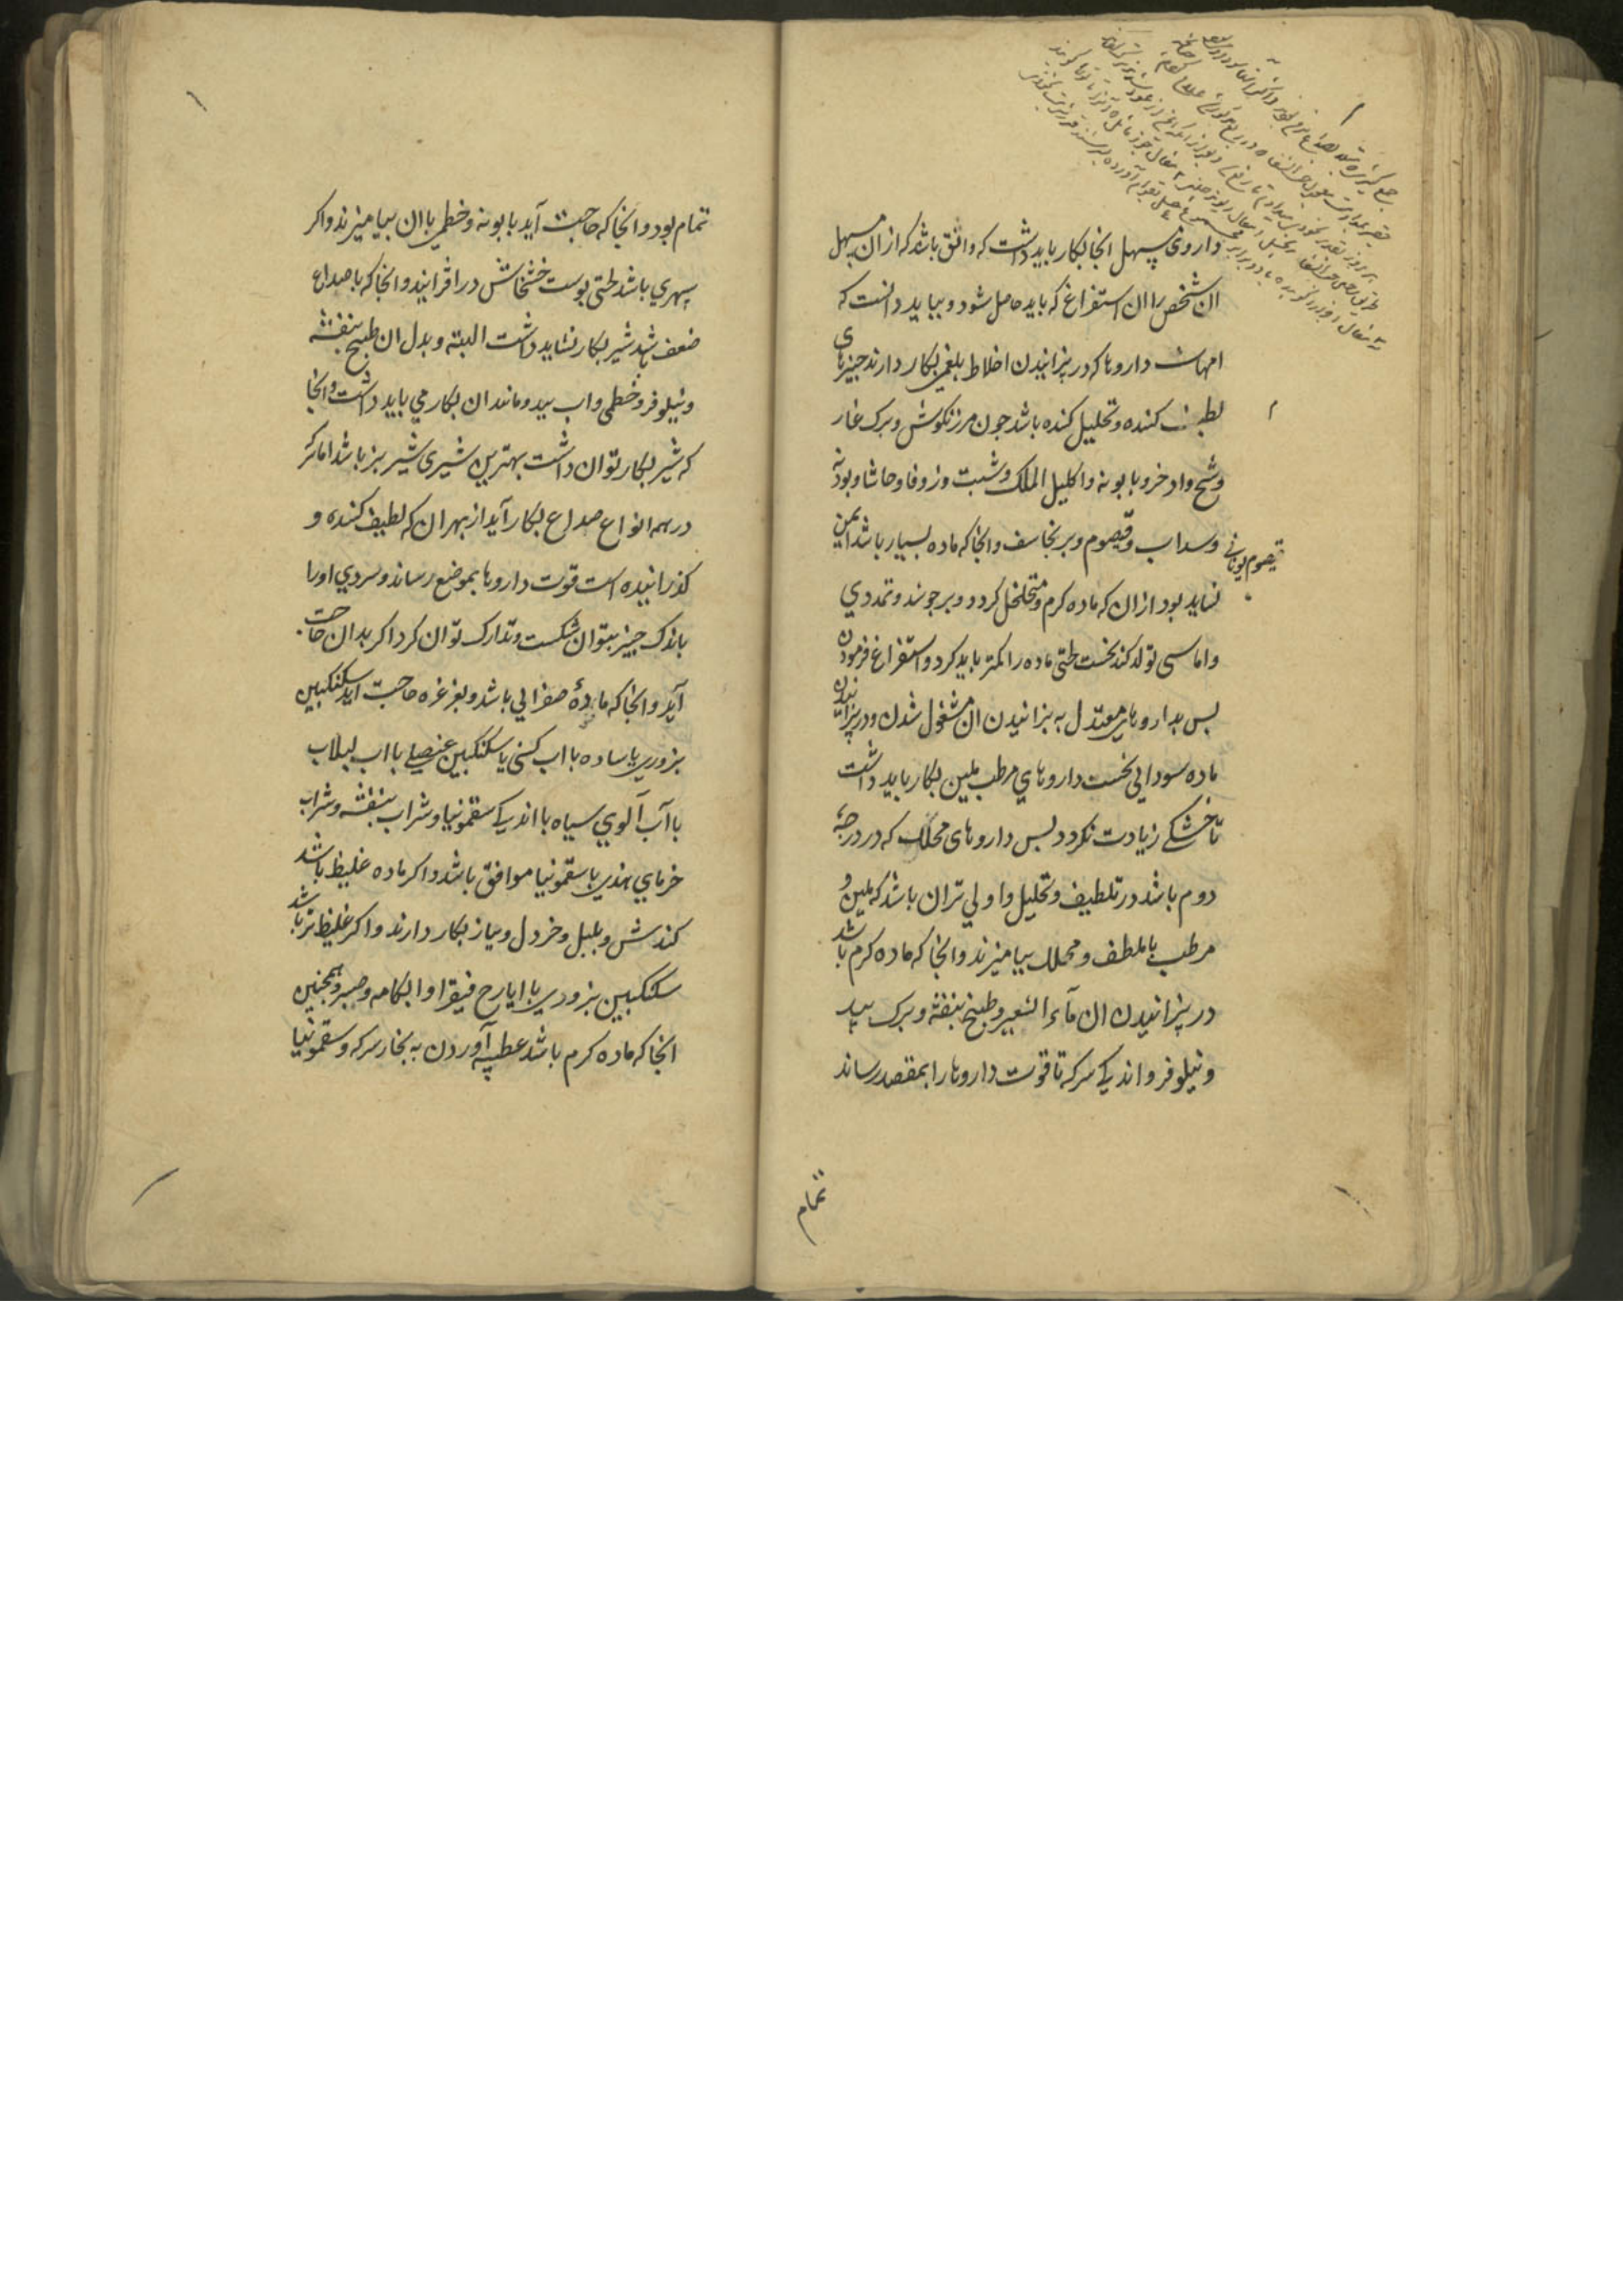 داروی مسهل انجا بکار باید داشت که واثق باشد که ازان مسهل
ان شخص را ان استفراغ که باید حاصل شود و بباید دانست که
امهات داروها که در پزانیدن اخلاط بلغمی بکار دارند چیزهای
لطیف کننده و تحلیل کننده باشد جون مرزنکوش و برک غار
و شیح و اذخر و بابونه و اکلیل الملک و شبت و زوفا و حاشا و پودنه
و سداب و قیصوم و برنجاسف و انجا که ماده بسیار باشد ایمن
نشاید بود ازان که ماده کرم و متخلخل کردد و برجوشد و تمددی
و اماسی تولد کند نخست لختی ماده را کمتر باید کرد و استفراغ فرمودن
بس بداروهای معتدل به بزانیدن ان مشغول شدن و در پزانیدن
ماده سودایی نخست داروهای مرطب ملین بکار باید داشت
تا خشکی زیادت نکردد بس داروهای محلل که در درجه
دوم باشد در تلطیف و تحلیل و اولی تر ان باشد که ملین و
مرطب با ملطف و محلل بیامیزند و انجا که ماده کرم باشد
در پزانیدن ان ماء الشعیر و طبیخ بنفشه و برک بید
و نیلوفر و اندکی سرکه تا قوت داروها را بمقصد رساند
تمام
تمام بود و انجا که حاجت آید بابونه و خطمی با ان بیامیزند و اکر
سهری باشد لختی پوست خشخاش در افزایند و انجا که با صداع
ضعف باشد شیر بکار نشاید داشت البته و بدل ان طبیخ بنفشه
و نیلوفر و خطمی و اب بید و مانند ان بکار می باید داشت و انجا
که شیر بکار توان داشت بهترین شیری شیر بز باشد اما سرکه
در همه انواع صداع بکار آید از بهر ان که لطیف کننده و
کذرانیده است قوت داروها بموضع رساند و سردی او را
باندک چیز بتوان شکست و تدارک توان کرد اکر بدان حاجت
آید و انجا که ماده صفرایی باشد و بغرغره حاجت اید سکنکبین
بزوری یا ساده با اب کسنی یا سکنکبین عنصلی با اب لبلاب
با آب آلوی سیاه با اندکی سقمونیا و شراب بنفشه و شراب
خرمای هندی با سقمونیا موافق باشد و اکر ماده غلیظ باشد
کندش و بلبل و خردل و پیاز بکار دارند و اکر غلیظ تر باشد
سکنکبین بزوری با ایارج فیقرا و ابکامه و صبر و همچنین
انجا که ماده کرم باشد عطسه آوردن به بخار سرکه و سقمونیا